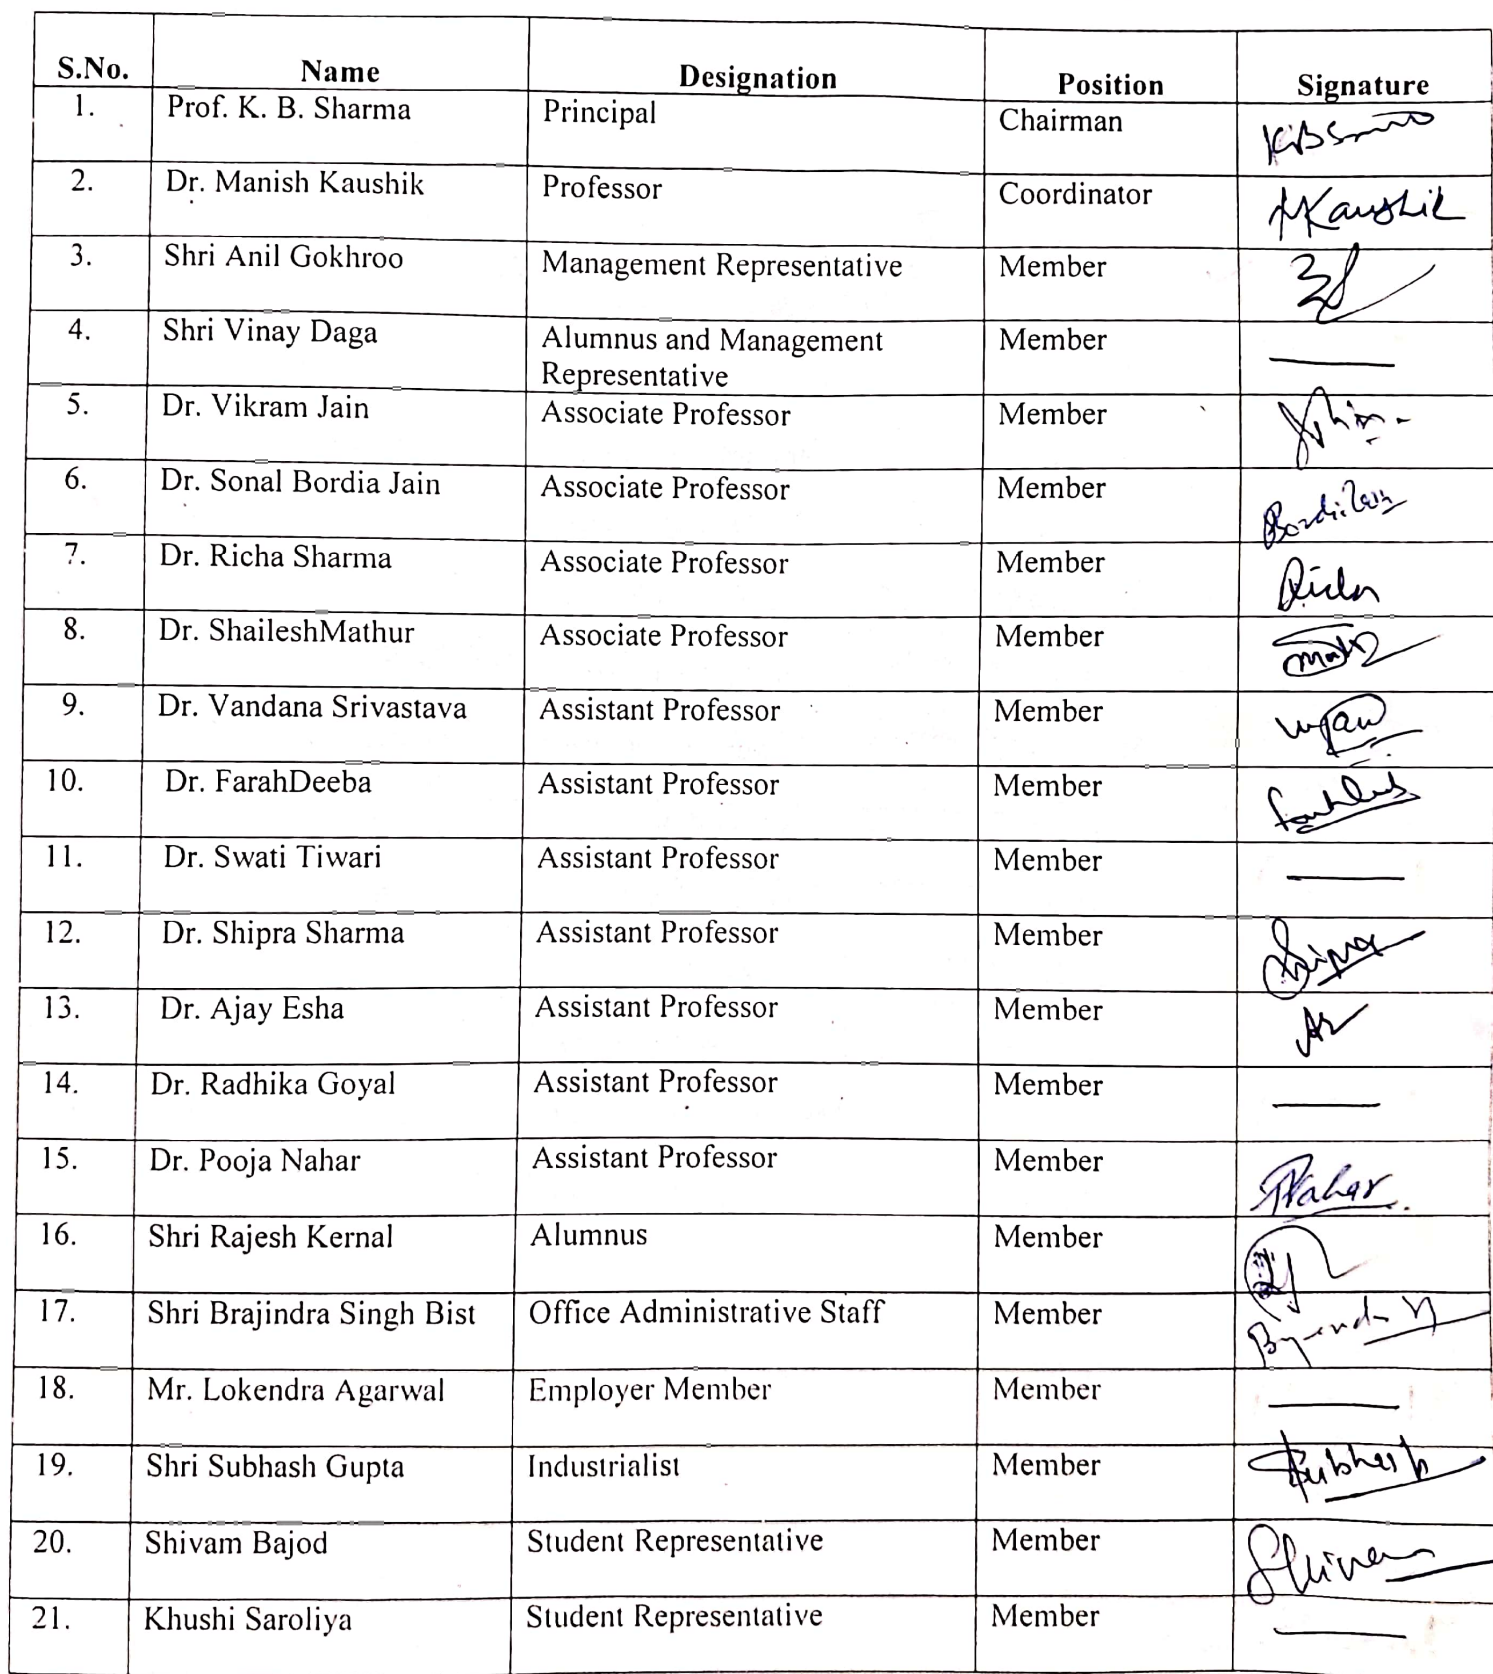 S.No. Name Designation Position Signature
1. Prof. K. B. Sharma Principal Chairman
2. Dr. Manish Kaushik Professor Coordinator MKaushik
3. Shri Anil Gokhroo Management Representative Member
4. Shri Vinay Daga Alumnus and Management Member —
Representative
5. Dr. Vikram Jain Associate Professor Member
6. Dr. Sonal Bordia Jain Associate Professor Member
7. Dr. Richa Sharma Associate Professor Member Richa
8. Dr. ShaileshMathur Associate Professor Member
9. Dr. Vandana Srivastava Assistant Professor Member
10. Dr. FarahDeeba Assistant Professor Member
11. Dr. Swati Tiwari Assistant Professor Member —
12. Dr. Shipra Sharma Assistant Professor Member Shipra
13. Dr. Ajay Esha Assistant Professor Member
14. Dr. Radhika Goyal Assistant Professor Member —
15. Dr. Pooja Nahar Assistant Professor Member PNahar.
16. Shri Rajesh Kernal Alumnus Member
17. Shri Brajindra Singh Bist Office Administrative Staff Member
18. Mr. Lokendra Agarwal Employer Member Member —
19. Shri Subhash Gupta Industrialist Member Subhash
20. Shivam Bajod Student Representative Member Shivam
21. Khushi Saroliya Student Representative Member —